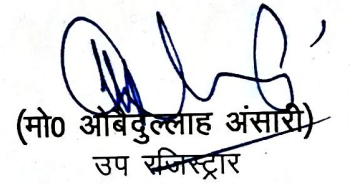 (मो0 ओबैदुल्लाह अंसारी)
उप रजिस्ट्रार